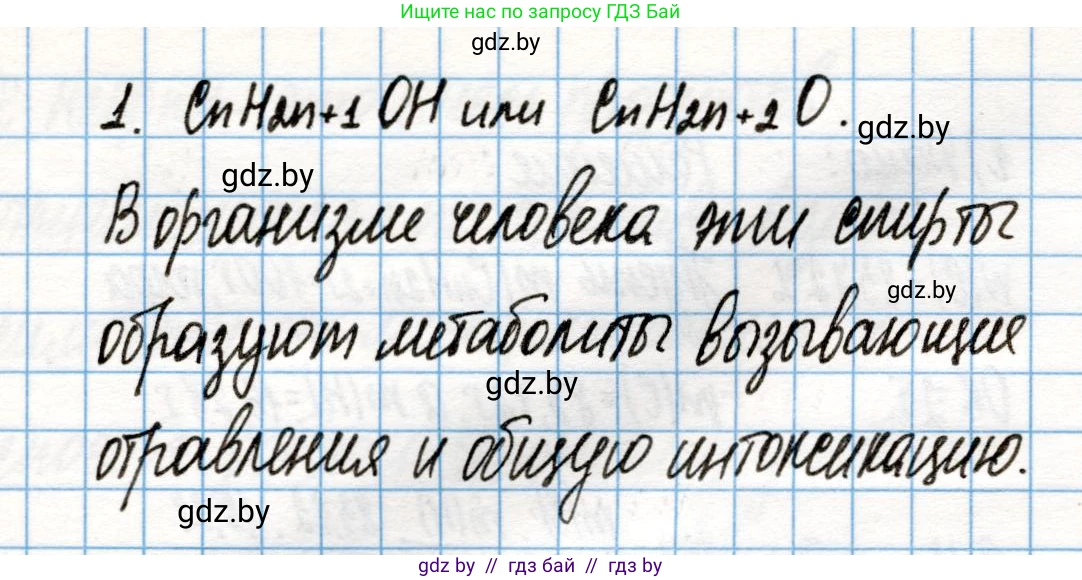 Ищите нас по запросу ГДЗ Бай
gdz.by
1. CnH2n+1 OH или CnH2n+2 O.
gdz.by
gdz.by
В организме человека эти спирты
gdz.by
образуют метаболиты вызывающие
gdz.by
отравления и общую интоксикацию.
gdz.by
gdz.by // гдз бай // гдз by